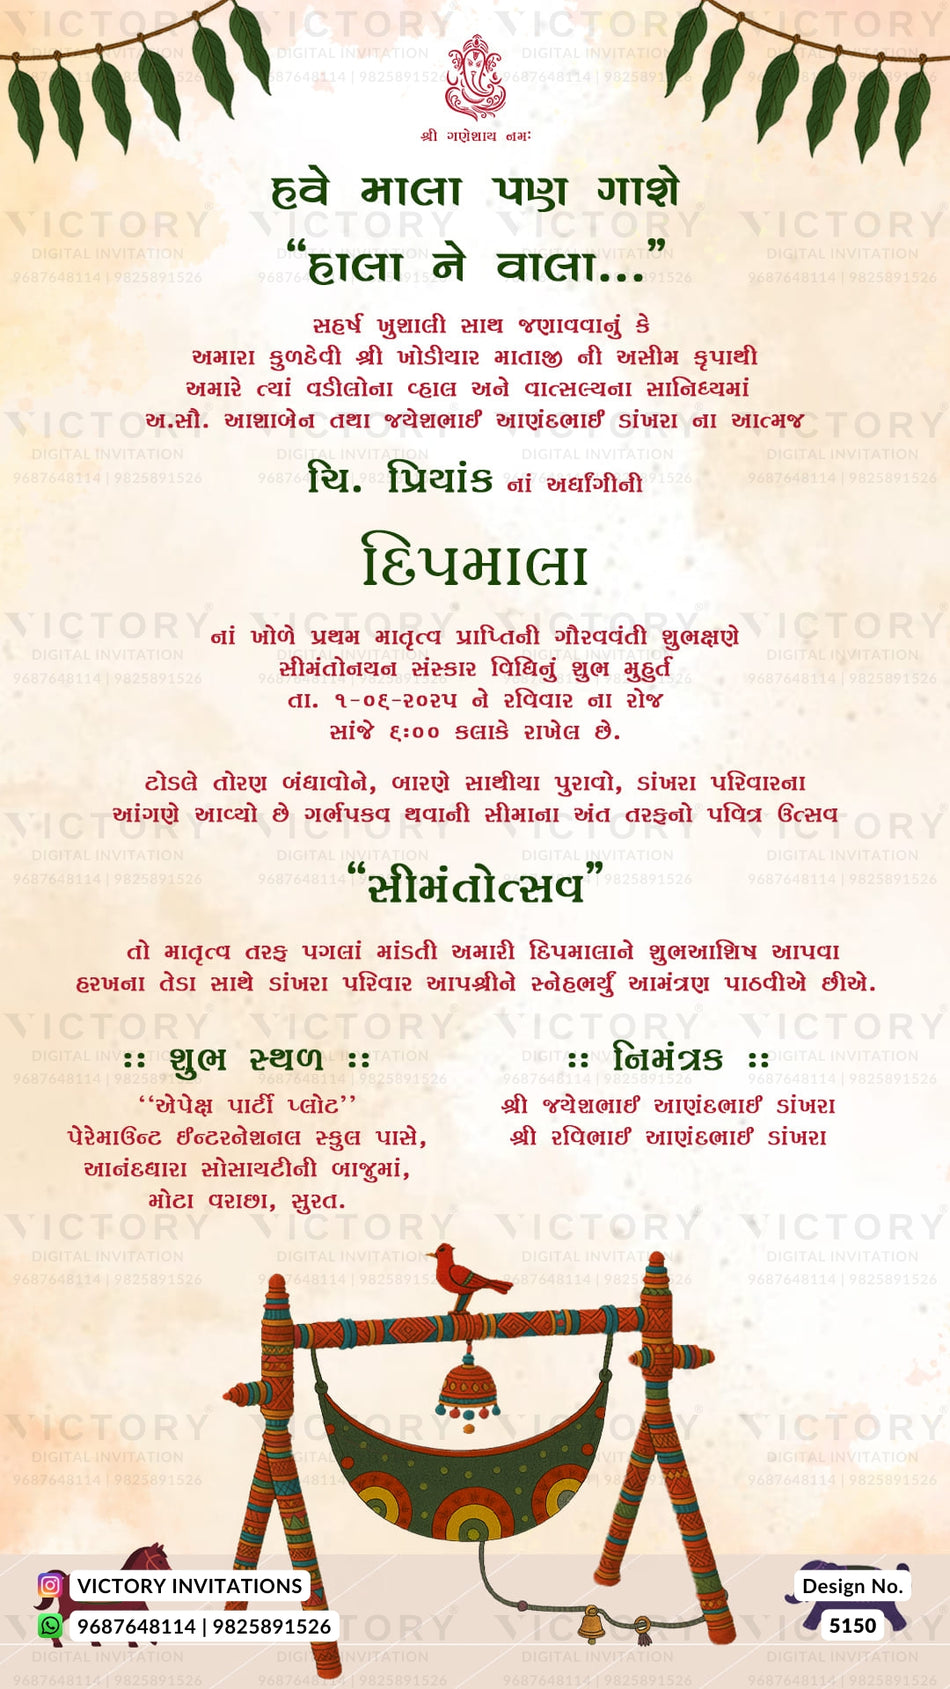 શ્રી ગણેશાય નમઃ
હવે માલા પણ ગાશે
“હાલા ને વાલા...”
સહર્ષ ખુશાલી સાથ જણાવવાનું કે
અમારા કુળદેવી શ્રી ખોડીયાર માતાજી ની અસીમ કૃપાથી
અમારે ત્યાં વડીલોના વ્હાલ અને વાત્સલ્યના સાનિધ્યમાં
અ.સૌ. આશાબેન તથા જયેશભાઈ આણંદભાઈ ડાંખરા ના આત્મજ
ચિ. પ્રિયાંક નાં અર્ધાંગીની
દિપમાલા
નાં ખોળે પ્રથમ માતૃત્વ પ્રાપ્તિની ગૌરવવંતી શુભક્ષણે
સીમંતોનયન સંસ્કાર વિધિનું શુભ મુહુર્ત
તા. ૧-૦૬-૨૦૨૫ ને રવિવાર ના રોજ
સાંજે ૬:૦૦ કલાકે રાખેલ છે.
ટોડલે તોરણ બંધાવોને, બારણે સાથીયા પુરાવો, ડાંખરા પરિવારના
આંગણે આવ્યો છે ગર્ભપકવ થવાની સીમાના અંત તરફનો પવિત્ર ઉત્સવ
“સીમંતોત્સવ”
તો માતૃત્વ તરફ પગલાં માંડતી અમારી દિપમાલાને શુભઆશિષ આપવા
હરખના તેડા સાથે ડાંખરા પરિવાર આપશ્રીને સ્નેહભર્યું આમંત્રણ પાઠવીએ છીએ.
:: શુભ સ્થળ ::
‘‘એપેક્ષ પાર્ટી પ્લોટ’’
પેરેમાઉન્ટ ઈન્ટરનેશનલ સ્કુલ પાસે,
આનંદધારા સોસાયટીની બાજુમાં,
મોટા વરાછા, સુરત.
:: નિમંત્રક ::
શ્રી જયેશભાઈ આણંદભાઈ ડાંખરા
શ્રી રવિભાઈ આણંદભાઈ ડાંખરા
VICTORY INVITATIONS
9687648114 | 9825891526
Design No.
5150
VICTORY
DIGITAL INVITATION
9687648114 | 9825891526